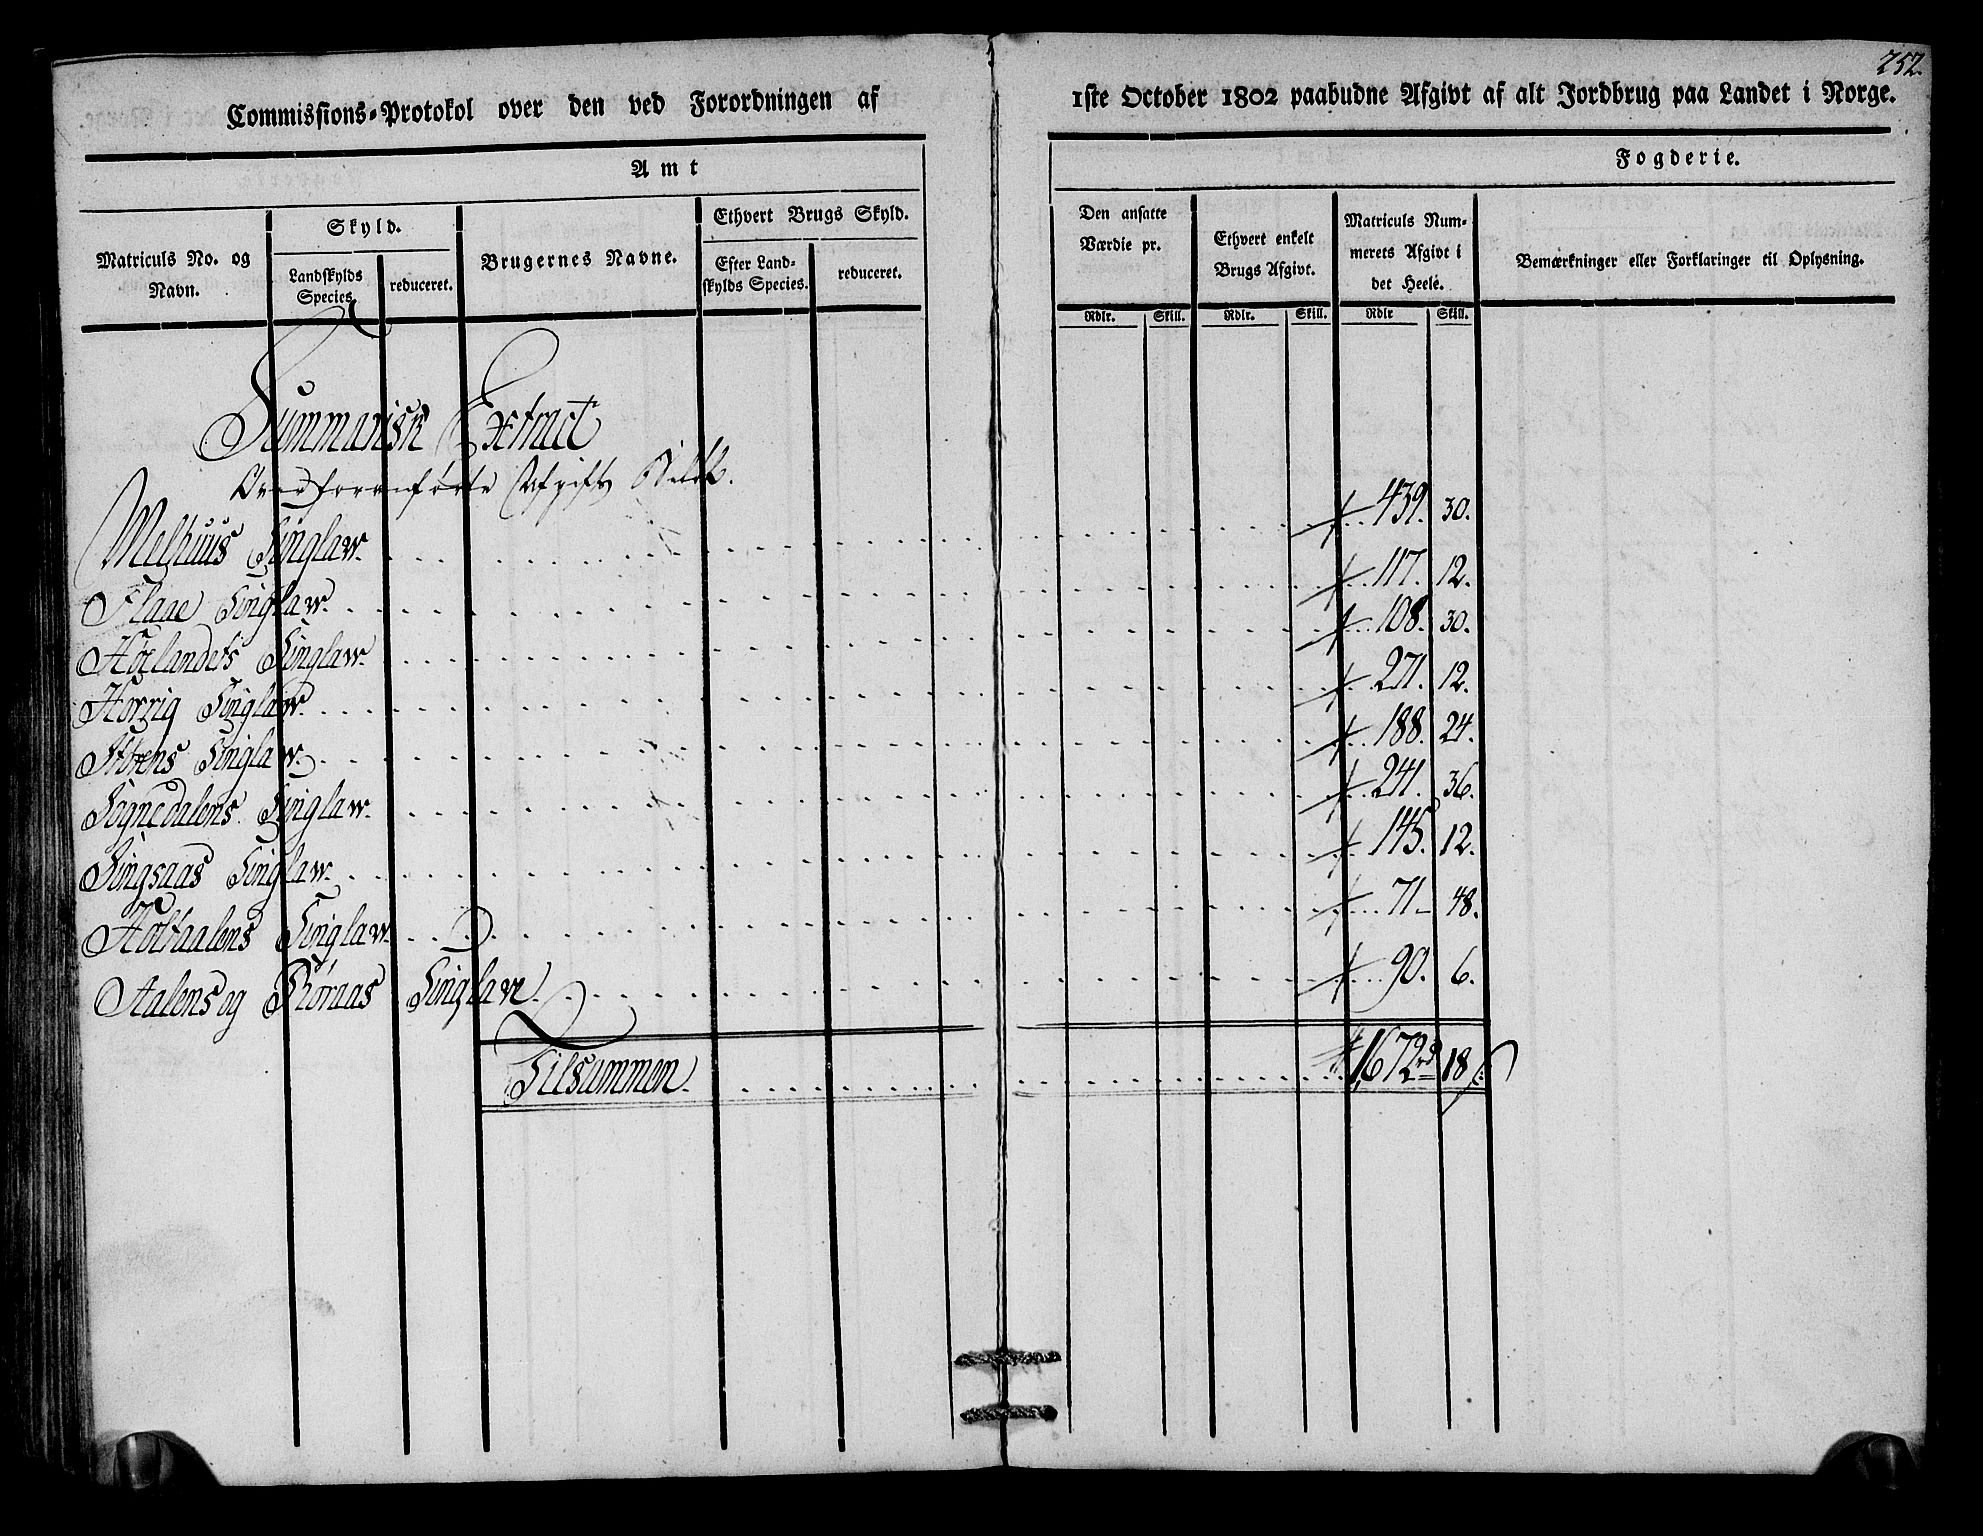 252.
Commissions-Protokol over den ved Forordningen af 1ste October 1802 paabudne Afgivt af alt Jordbrug paa Landet i Norge.
Amt Fogderie.
Matriculs No. og Navn.
Skyld.
Landskylds Species.
reduceret.
Brugernes Navne.
Ethvert Brugs Skyld.
Efter Landskylds Species.
reduceret.
Den ansatte Værdie pr.
Ethvert enkelt Brugs Afgivt.
Matriculs Nummerets Afgivt i det Heele.
Bemærkninger eller Forklaringer til Oplysning.
Rdlr. Skill. Rdlr. Skill. Rdlr Skill.
Summarisk Extract
Afgifts
Melhuus Tinglaw. 439. 30.
Flaae Tinglaw. 117. 12.
Hölandets Tinglaw. 108. 30.
Horrig Tinglaw. 271. 12.
Störens Tinglaw. 188. 24.
Sognedalens Tinglaw. 241. 36.
Singsaas Tinglaw. 145. 12.
Holtaalens Tinglaw. 71 48.
Aalens og Röraas Tinglaw. 90. 6.
Tilsammen. 1672 rd 18 s